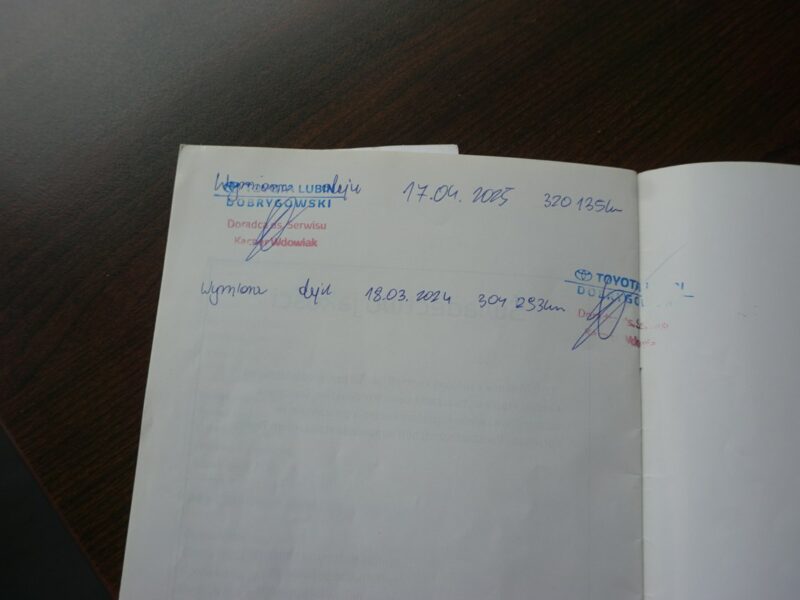 Wymiana oleju 17.04. 2025 320 135km
TOYOTA LUBIN
DOBRYGOWSKI
Doradca ds. Serwisu
Kacper Wdowiak
Wymiana oleju 18.03. 2024 304 293km
TOYOTA
DOBRYGO